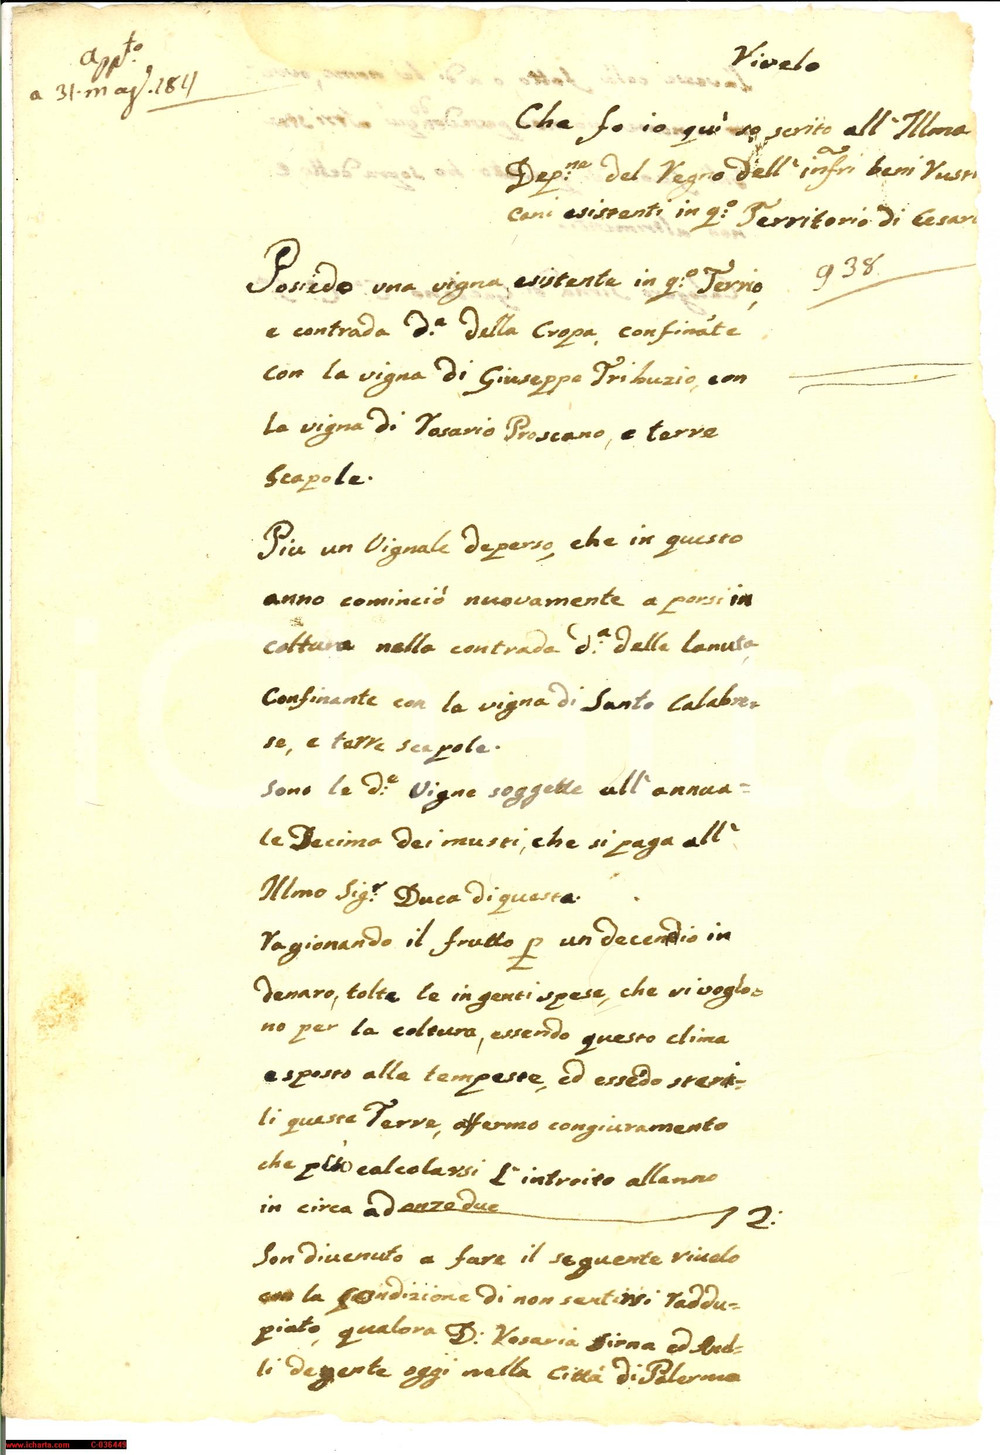 app.to
a 31. mag.o 1811
Rivelo
Che fo io quì soscrito all' Illma
Dep.ne del Regno dell' infri beni Rusti
cani esistenti in q.o Territorio di Cesarò
938
Posiedo una vigna esistente in q.o Terrio,
e contrada d.a della Cropa, confinate
con la vigna di Giuseppe Tribuzio, con
la vigna di Rosario Proscano, e terre
Scapole.
Più un Vignale deperso, che in questo
anno cominciò nuovamente a porsi in
coltura nella contrada d.a delle Lanusa
Confinante con la vigna di Santo Calabre=
se, e terre scapole.
Sono le d.e Vigne soggette all' annua=
le Decima dei musti, che si paga all'
Illmo Sig.r Duca di questa.
Ragionando il frutto p un decendio in
denaro, tolte le ingenti spese, che vi voglo=
no per la coltura, essendo questo clima
esposto alle tempeste, ed essedo steri=
li queste Terre, affermo congiuramento
che può calcolarsi L'introito allanno
in circa ad onze due 2:
Son divenuto a fare il seguente rivelo
con la condizione di non sentirsi raddu=
piato, qualora D: Rosaria Sirna ed And=
li degente oggi nella Città di Palermo
www.icharta.com C-036449
iCharta